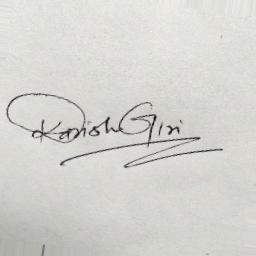 Kanish Giri